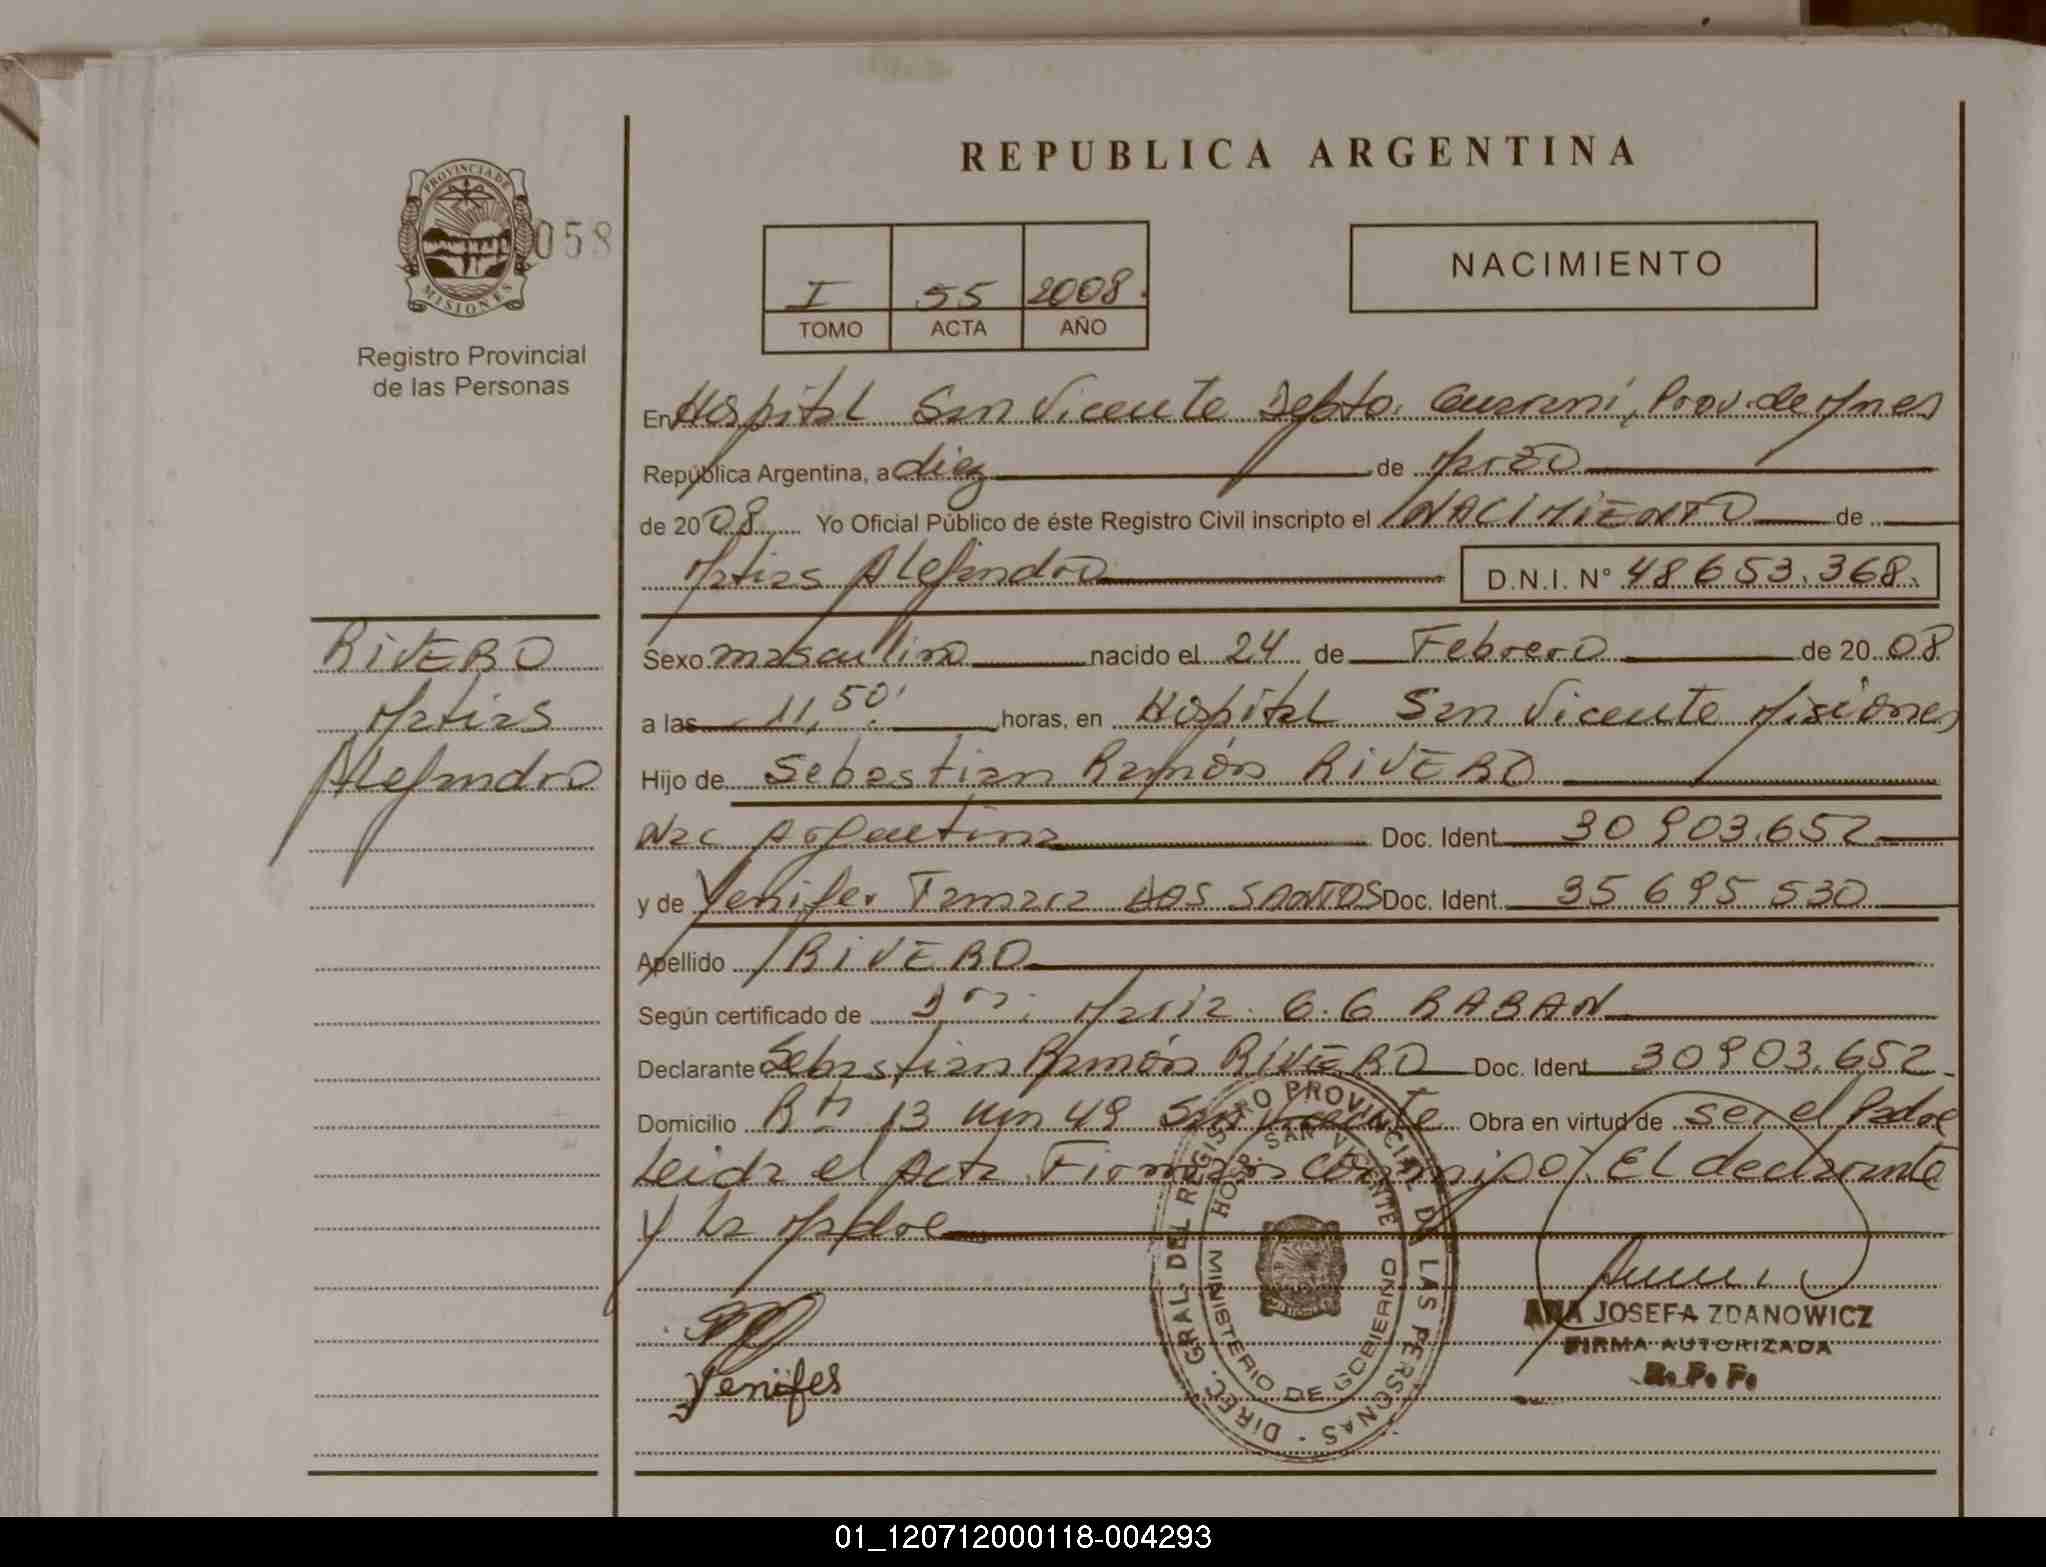 REPUBLICA ARGENTINA
PROVINCIA DE MISIONES
058
Registro Provincial
de las Personas
I 55 2008.
TOMO ACTA AÑO
NACIMIENTO
En Hospital San Vicente Depto. Guaraní, Prov. de Mnes
República Argentina, a diez de Marzo
de 2008 Yo Oficial Público de éste Registro Civil inscripto el NACIMIENTO de
Matias Alejandro D.N.I. Nº 48653.368.
RIVERO
Matias
Alejandro
Sexo masculino nacido el 24 de Febrero de 2008
a las 11,50' horas, en Hospital San Vicente Misiones
Hijo de Sebastian Ramón RIVERO
Nac Argentina Doc. Ident. 30903.652
y de Yenifer Tamara DOS SANTOS Doc. Ident. 35695530
Apellido RIVERO
Según certificado de Maria G. G RABAN
Declarante Sebastian Ramón RIVERO Doc. Ident. 30903.652
Domicilio 13 km 49 San Vicente Obra en virtud de ser el Padre
Leida el Acta Firman conmigo El declarante
y la Madre
Yenifes
DIREC. GRAL. DEL REGISTRO PROVINCIAL DE LAS PERSONAS
HOSP. SAN VICENTE
MINISTERIO DE GOBIERNO
ANA JOSEFA ZDANOWICZ
FIRMA AUTORIZADA
R. P. P.
01_120712000118-004293